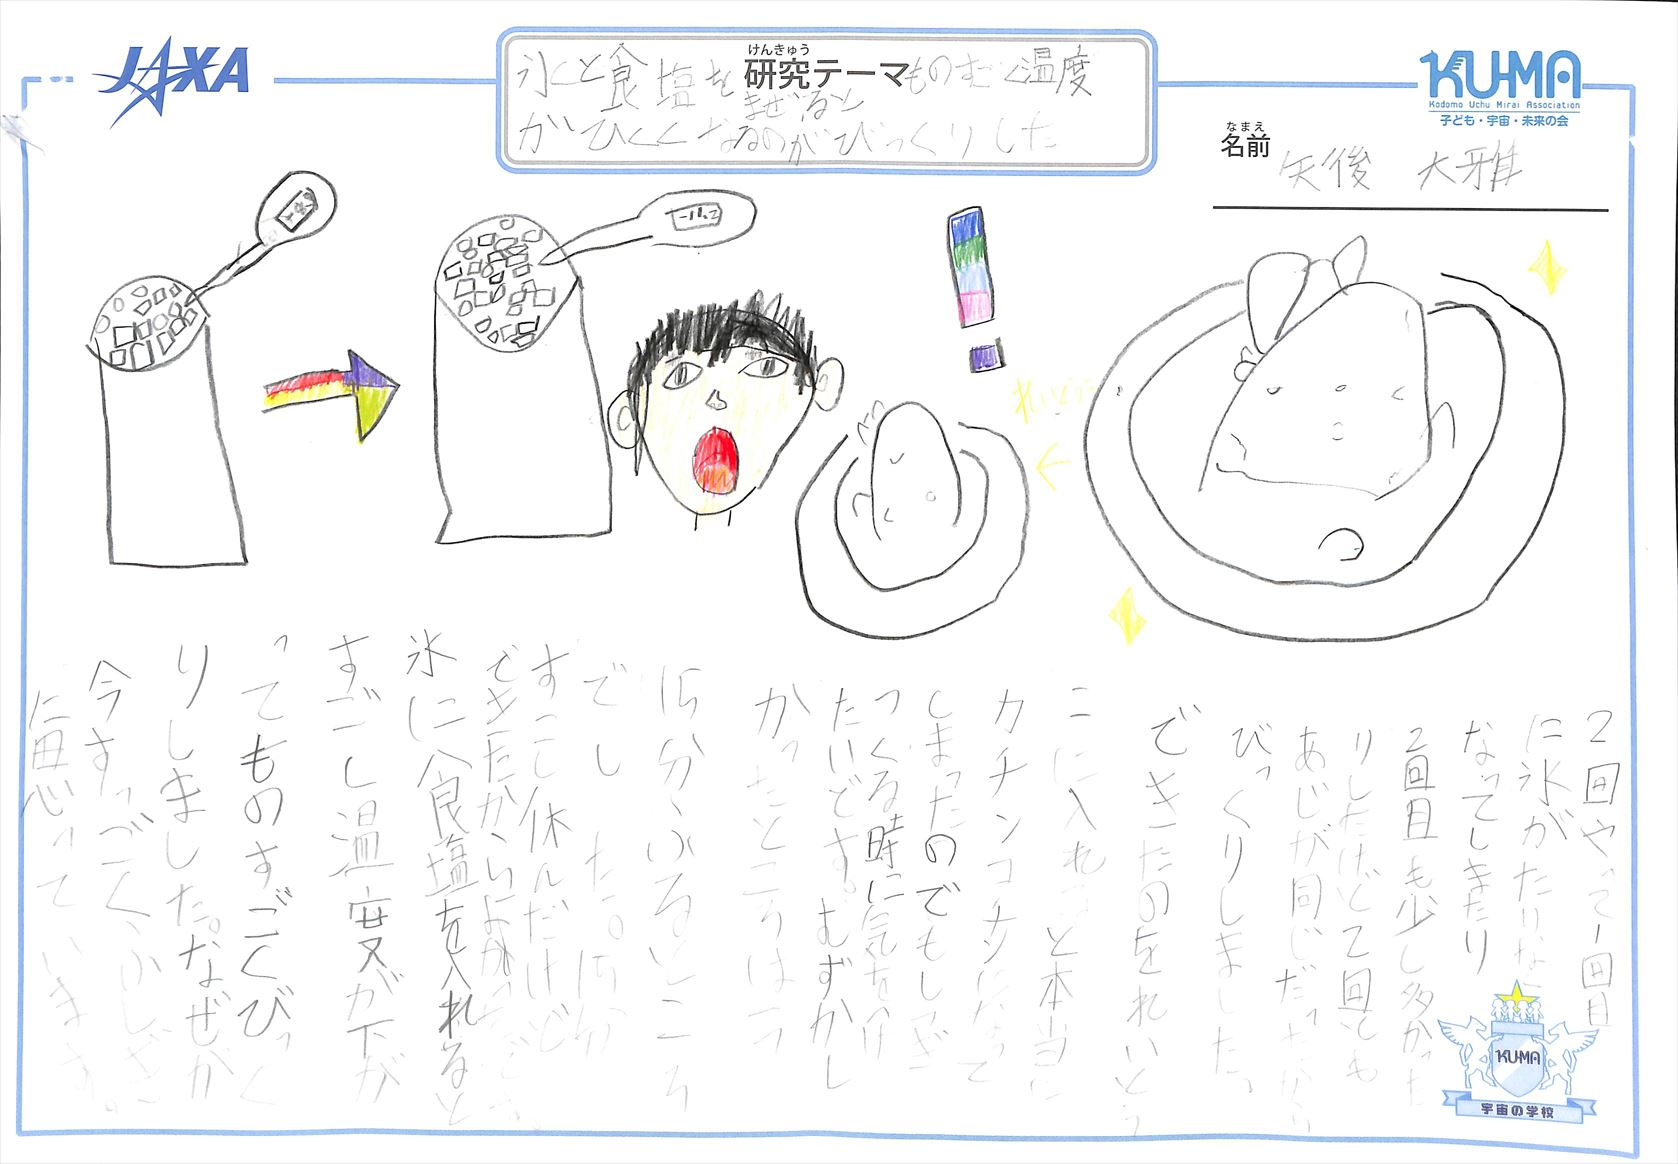 JAXA
けんきゅう
研究テーマ
氷と食塩を まぜると ものすごく温度
がひくくなるのがびっくりした
KU-MA
Kodomo Uchu Mirai Association
子ども・宇宙・未来の会
なまえ
名前
矢後 大雅
-11.2
れいとう
2回やって1回目
に氷がたりな
なってしまたり
2回目も少し多かった
りしたけど2回とも
あじが同じだったから
びっくりしました。
できたのをれいとう
こに入れ と本当に
カチンコチンになって
しまったのでもしつぎ
つくる時に気をつけ
たいどす。むずかし
かったところはう
15分、ふるところ
でした。15分
すこし休んだけど
できたからよかったです
氷に食塩を入れると
すごし温度が下が
ってものすごくびっく
りしました。なぜか
今すっごくふしぎ
に思っています。
KUMA
宇宙の学校